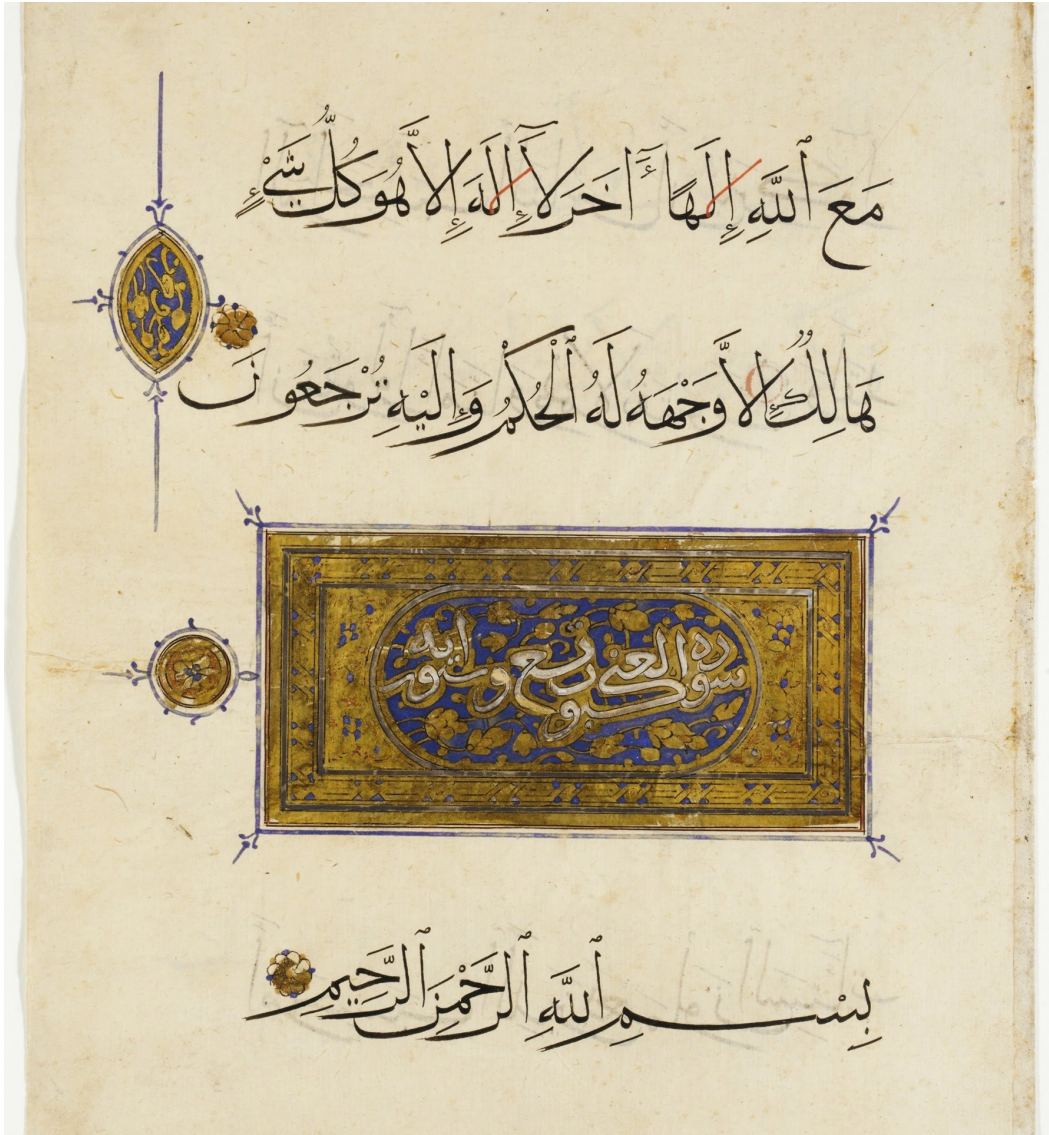 مَعَ ٱللَّهِ إِلَٰهًا ءَاخَرَ لَآ إِلَٰهَ إِلَّا هُوَ كُلُّ شَيْءٍ
هَالِكٌ إِلَّا وَجْهَهُ لَهُ ٱلْحُكْمُ وَإِلَيْهِ تُرْجَعُونَ
سوره العنكبوت تسع وستون ايه
بِسْمِ ٱللَّهِ ٱلرَّحْمَٰنِ ٱلرَّحِيمِ